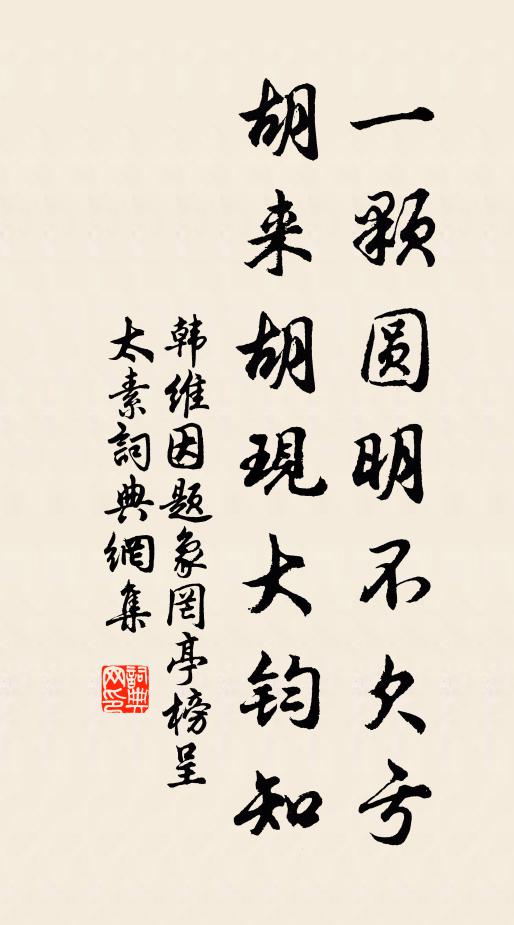 一颗圆明不欠亏
胡来胡現大钧知
韩维因题象罔亭榜呈
太素詞典網集
詞典网印